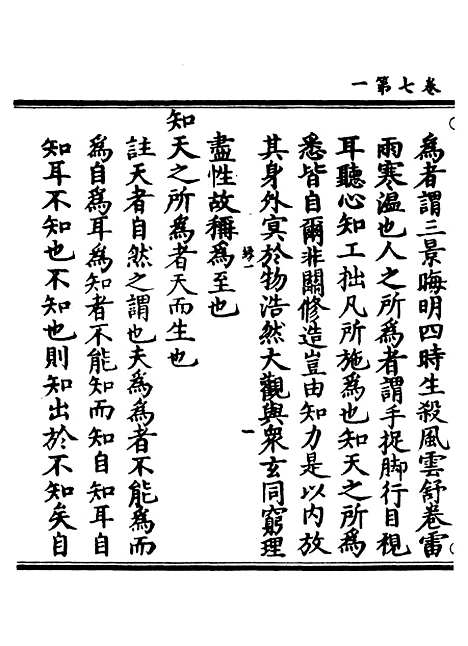 一第七卷
為者謂三景晦明四時生殺風雲舒卷雷
雨寒溫也人之所為者謂手捉脚行目視
耳聽心知工拙凡所施為也知天之所為
悉皆自爾非關修造豈由知力是以內放
其身外冥於物浩然大觀與衆玄同窮理
盡性故稱為至也
知天之所為者天而生也
註天者自然之謂也夫為為者不能為而
為自為耳為知者不能知而知自知耳自
知耳不知也不知也則知出於不知矣自